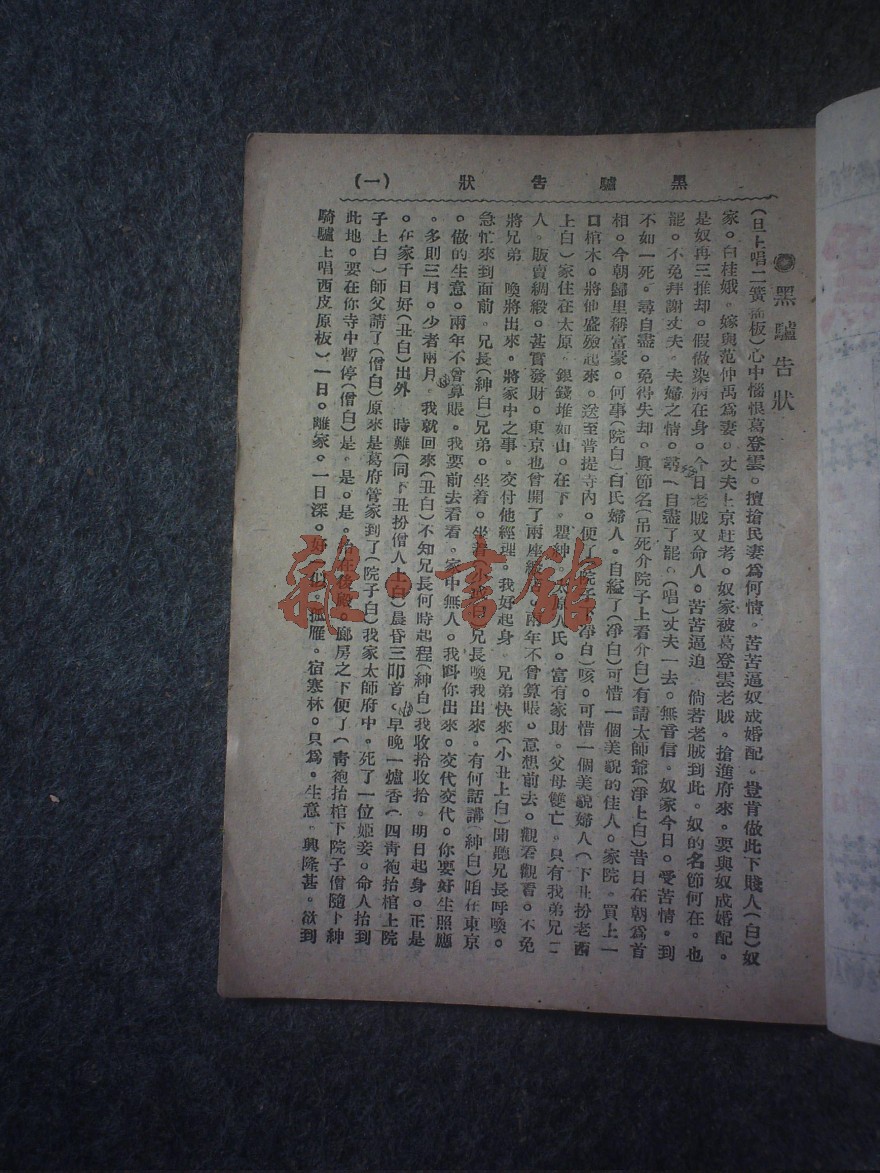 黑驢告狀 (一)
黑驢告狀
(旦上唱二簧 板)心中惱恨葛登雲。擅搶民妻爲何情。苦苦逼奴成婚配。豈肯做此下賤人(白)奴
家。白桂娥。嫁與范仲禹爲妻。丈夫上京赶考。奴家被葛登雲老賊。搶進府來。要與奴成婚配。
是奴再三推却。假做染病在身。今日老賊又命人。苦苦逼迫 倘若老賊到此。奴的名節何在。也
罷。不免拜謝丈夫。夫婦之情。尋 自盡了罷。(唱)丈夫一去。無音信。奴家今日。受苦情。到
不如一死。尋自盡。免得失却。眞節名(吊死介院子上看介白)有請太師爺(淨上白)昔日在朝爲首
相。今朝歸里稱富豪。何事(院白)白氏婦人。自縊了(淨白)可惜一個美貌的佳人。家院。買上一
口棺木。將他盛殮起來。送至普提寺內。便了(院子 淨白)咳。可惜一個美貌婦人(下丑扮老西
上白)家住在太原。銀錢堆如山。在下。 紳。 人氏。富有家財。父母雙亡。只有我弟兄二
人。販賣綢緞。甚實發財。東京也曾開了兩座 兩年不曾算賬。意想前去。觀看觀看。不免
將兄弟 喚將出來。將家中之事。交付他經理。我好起身 兄弟快來(小丑上白)聞聽兄長呼喚。
急忙來到面前。兄長(紳白)兄弟。坐着。坐着 兄長喚我出來。有何話講(紳白)咱在東京
。做的生意。兩年不曾算賬。我要前去看看。家中無人。我叫你出來。交代交代。你要好生照應
。多則三月。少者兩月。我就回來(丑白)不知兄長何時起程(紳白)我收拾收拾。明日起身。正是
。在家千日好(丑白)出外 時難(同下丑扮僧人上白)晨昏三叩首。早晚一爐香(四青袍抬棺上院
子上白)師父請了(僧白)原來是葛府管家到了(院子白)我家太師府中。死了一位姬妾。命人抬到
此地。要在你寺中暫停(僧白)是。是。是。抬在後殿。廊房之下便了(青袍抬棺下院子僧隨下紳
騎驢上唱西皮原板)一日。離家。一日深。好似。孤雁。宿寒林。只爲。生意。興隆甚。欲到
雜·書館